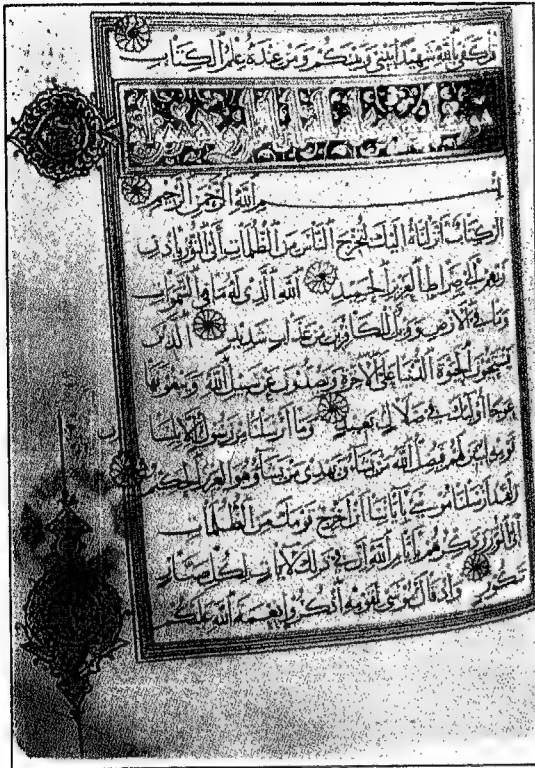 قل كفى بالله شهيدا بيني وبينكم ومن عنده علم الكتاب
بسم الله الرحمن الرحيم
الر كتاب انزلناه اليك لتخرج الناس من الظلمات الى النور باذن
ربهم الى صراط العزيز الحميد الله الذي له ما في السموات
وما في الارض وويل للكافرين من عذاب شديد الذين
يستحبون الحيوة الدنيا على الاخرة ويصدون عن سبيل الله ويبغونها
عوجا اولئك في ضلال بعيد وما ارسلنا من رسول الا بلسان
قومه ليبين لهم فيضل الله من يشاء ويهدي من يشاء وهو العزيز الحكيم
ولقد ارسلنا موسى باياتنا ان اخرج قومك من الظلمات
الى النور وذكرهم بايام الله ان في ذلك لايات لكل صبار
شكور واذ قال موسى لقومه اذكروا نعمة الله عليكم